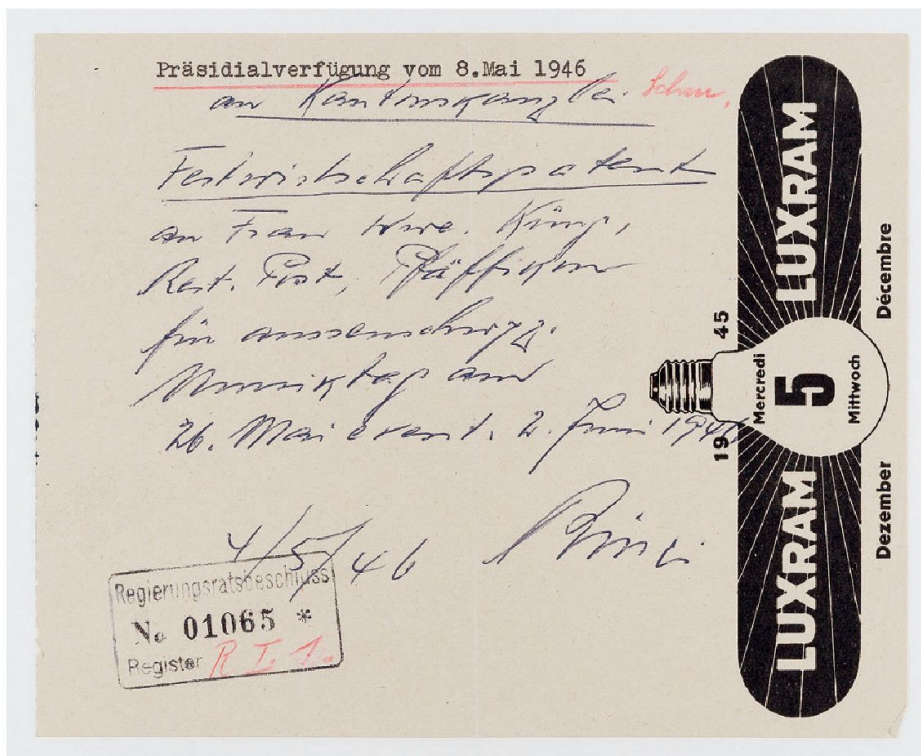 Präsidialverfügung vom 8.Mai 1946
an Kantonskanzlei
Festwirtschaftspatent
an Frau Wwe. Küng,
Rest. Post, Pfäffikon
für ausserschwyz.
Musiktag am
26. Mai event. 2. Juni 1946
4/5/46
Regierungsratsbeschluss
No 01065 *
Register R I 1.
LUXRAM
1945
Mercredi
5
Mittwoch
Décembre
Dezember
LUXRAM